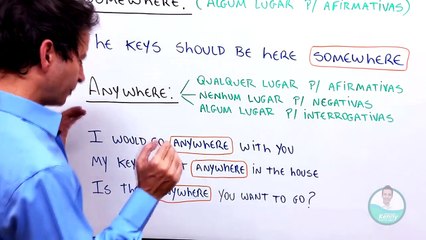 SOMEWHERE: (ALGUM LUGAR P/ AFIRMATIVAS)
THE KEYS SHOULD BE HERE SOMEWHERE
ANYWHERE: QUALQUER LUGAR P/ AFIRMATIVAS
NENHUM LUGAR P/ NEGATIVAS
ALGUM LUGAR P/ INTERROGATIVAS
I WOULD GO ANYWHERE WITH YOU
MY ANYWHERE IN THE HOUSE
IS ANYWHERE YOU WANT TO GO?